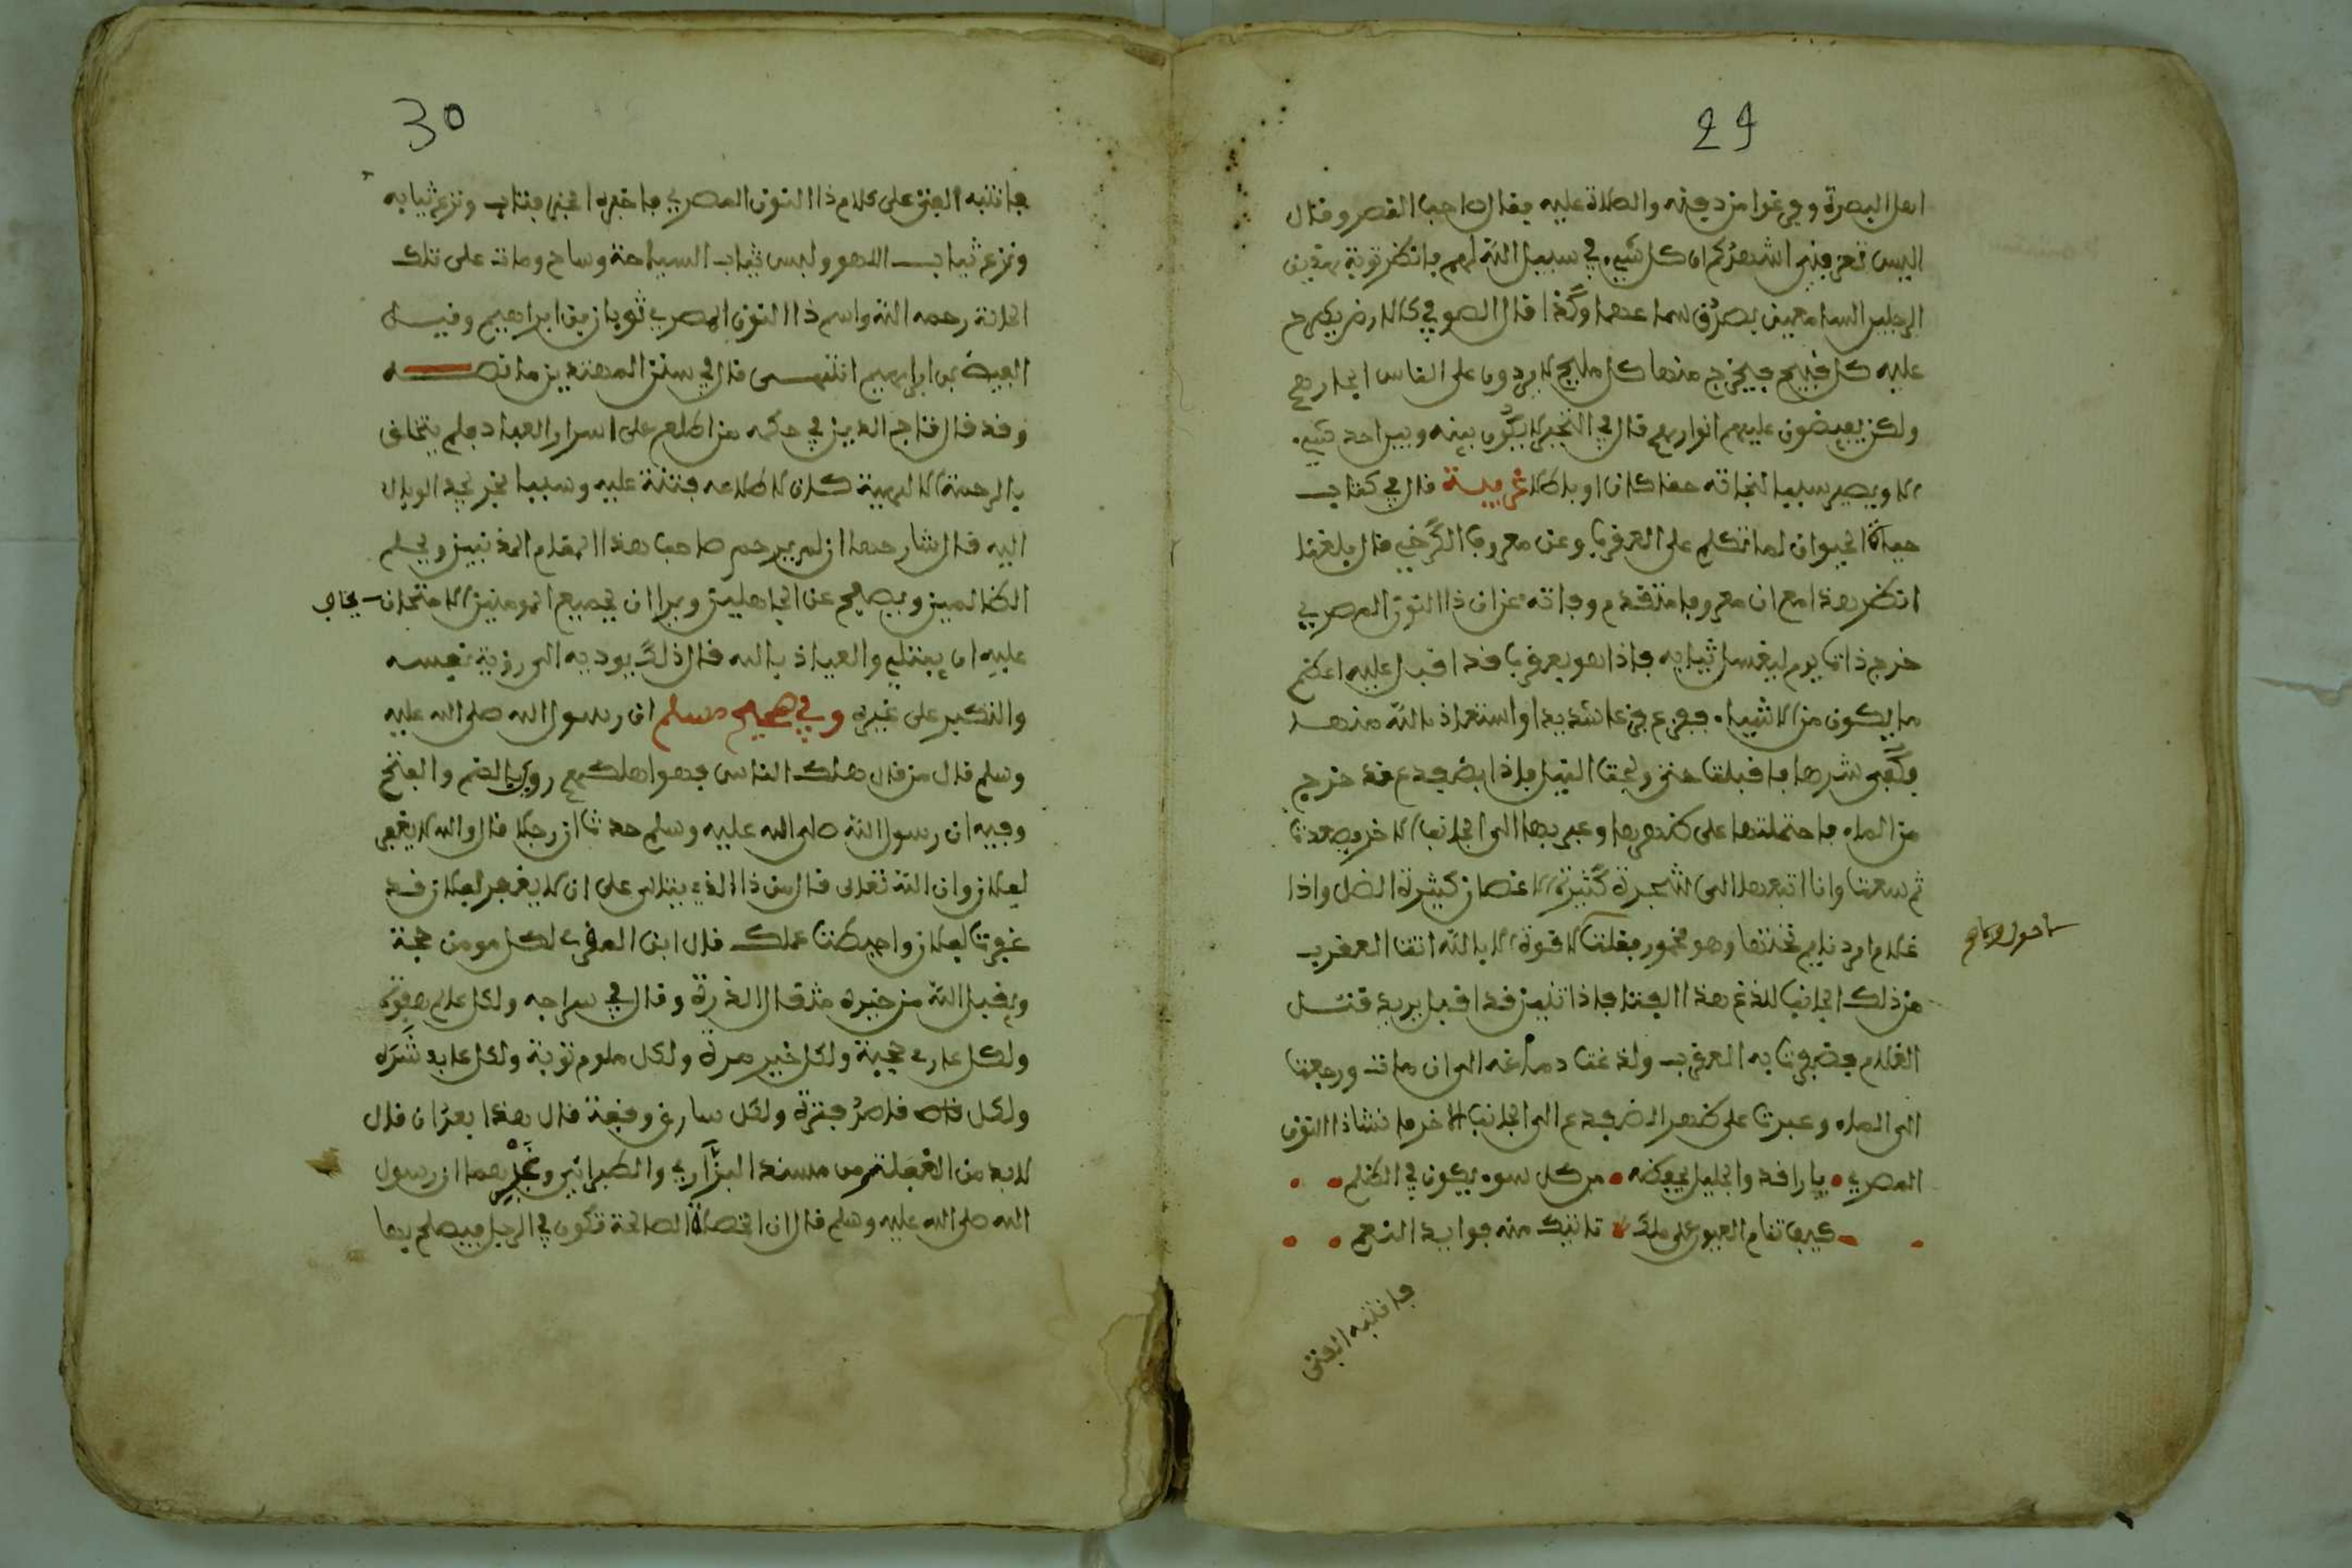 29
اهل البصرة وفرغوا من دفنه والصلاة عليه فقال صاحب القصر وقال
اليس تعرفني اشهدكم ان كل شيء في سبيل الله لهم فانظر توبة هذين
الرجلين السامعين بصدق سماعهما وكذا قال الصوفي كالارض يطرح
عليه كل قبيح فيخرج منها كل مليح لا يردون على الناس اثارهم
ولكن يفيضون عليهم انوارهم قال في التحبير لا يكون بينه وبين احد شيء
الا ويصير سببا لنجاته حقا كان او باطلا غريبة قال في كتاب
حياة الحيوان لما تكلم على العقرب وعن معروف الكرخي قال بلغنا
انظر هذا مع ان معروفا متقدم وفاته عن ان ذا النون المصري
خرج ذات يوم ليغسل ثيابه فاذا هو بعقرب قد اقبل عليه اعظم
ما يكون من الاشياء ففزع فزعا شديدا واستعاذ بالله منها
فكفي شرها فاقبلت حتى ولجت النيل فاذا بضفدع قد خرج
من الماء فاحتملتها على ظهرها وعبر بها الى الجانب الاخر فصعدت
ثم سعت وانا اتبعها الى شجرة كثيرة الاغصان كثيرة الظل واذا
غلام امرد نايم تحتها وهو مخمور فقلت لا قوة الا بالله اتت العقرب
من ذلك الجانب للدغ هذا الفتا فاذا تنين قد اقبل يريد قتل
الغلام فضربت به العقرب ولدغت دماغه الى ان مات ورجعت
الى الماء وعبرت على ظهر الضفدع الى الجانب الاخر فانشا ذا النون
المصري يا راقدا والجليل يحفظه من كل سوء يكون في الظلم
كيف تنام العيون على ملك تاتيك منه فوايد النعم
فانتبه الفتى
30
فانتبه الفتى على كلام ذا النون المصري فاخبره الخبر فتاب ونزع ثيابه
ونزع ثياب اللهو ولبس ثياب السياحة وساح ومات على تلك
الحالة رحمه الله واسم ذا النون المصري ثوبان بن ابراهيم وقيل
الفيض بن ابراهيم انتهى قال في سنن المهتدين ما نصه
وقد قال تاج الدين في حكمه من اطلع على اسرار العباد فلم يتخلق
بالرحمة الالهية كان اطلاعه فتنة عليه وسببا لجر الوبال
اليه قال شارحها ان لم يرحم صاحب هذا المقام المذنبين ويحلم
الظالمين ويصفح عن الجاهلين وبر ان لجميع المومنين الامتحان يخاف
عليه ان يبتلي والعياذ بالله قال ذلك يوديه الى رؤية نفسه
والتكبر على غيره وفي صحيح مسلم ان رسول الله صلى الله عليه
وسلم قال من قال هلك الناس فهو اهلكهم روي بالضم والفتح
وفيه ان رسول الله صلى الله عليه وسلم حدث ان رجلا قال والله لا يغفر
لفلان وان الله تعالى قال من ذا الذي يتالى على ان لا يغفر لفلان قد
غفرت لفلان واحبطت عملك قال ابن العربي لكل مومن حجة
ويقبل الله من خيره مثقال الذرة وقال في سراجه ولكل عالم هفوة
ولكل عارف حجبة ولكل خير مرة ولكل ملوم توبة ولكل عابد شرة
ولكل قاصد فترة ولكل سارع وقفة قال هذا بعد ان قال
لابد من الغفلة ومن مسند البزار والطبراني وغيرهما ان رسول
الله صلى الله عليه وسلم قال ان الخصلة الصالحة تكون في الرجل فيصلح بها